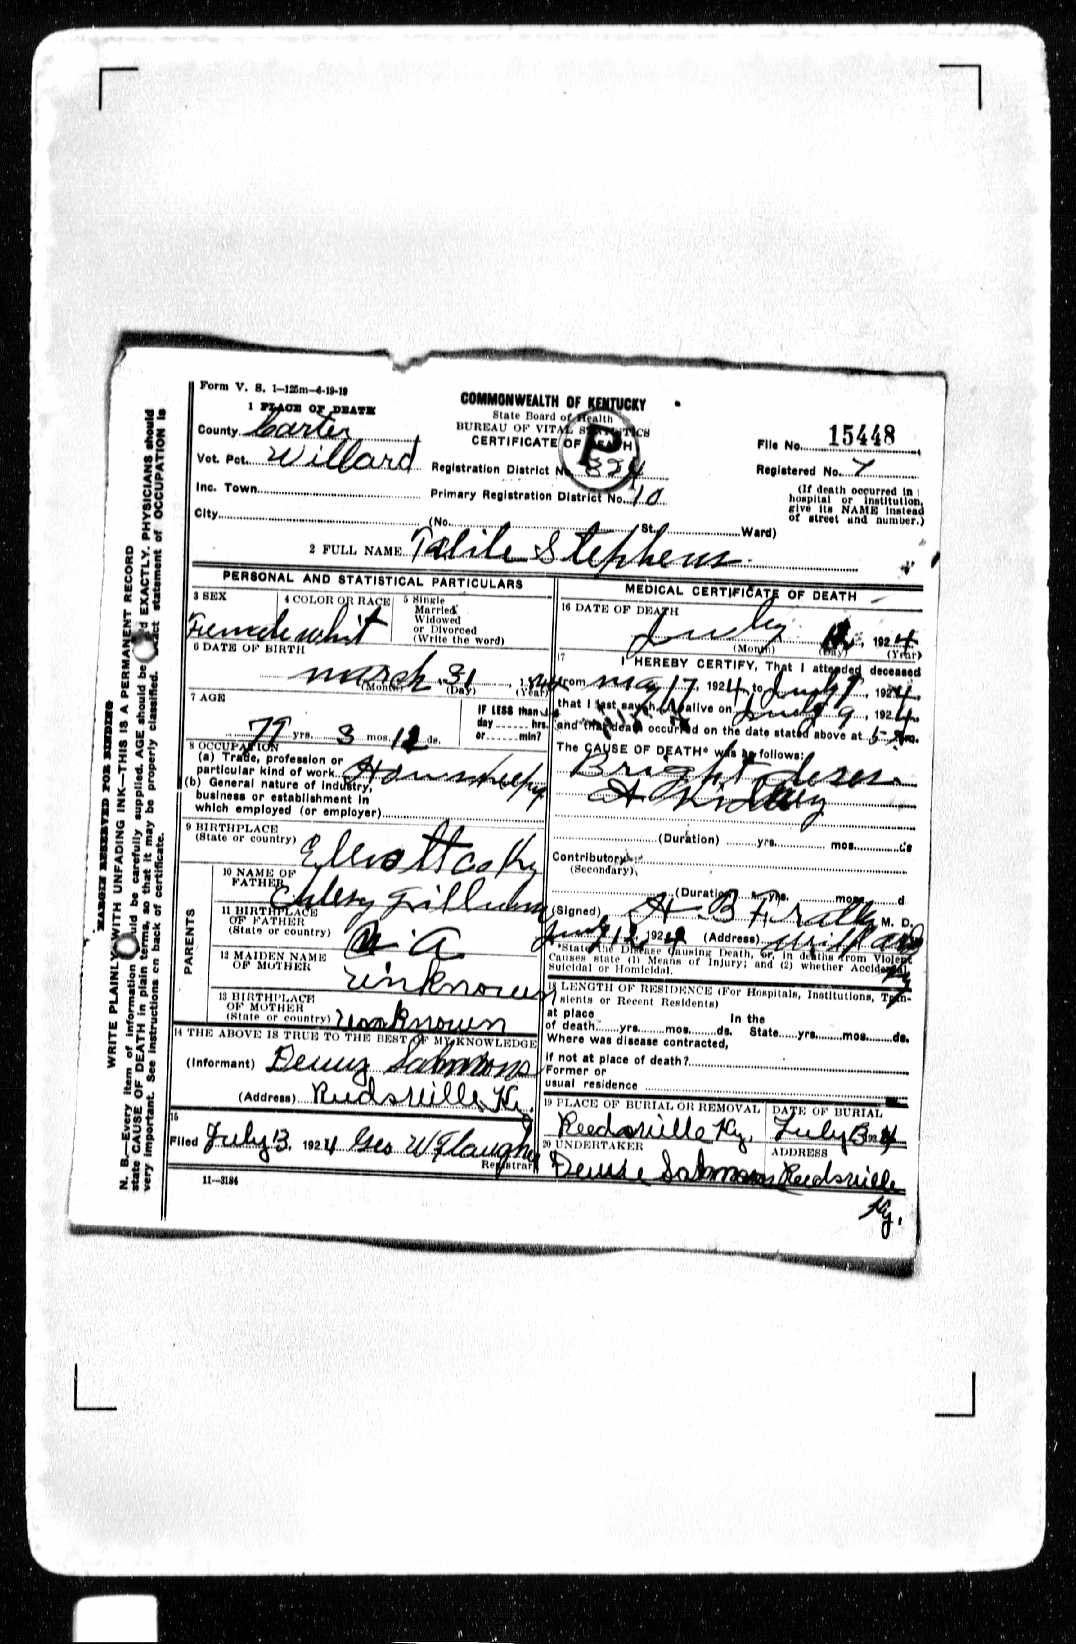 Form V. S. 1—125m—4-19-19
1 PLACE OF DEATH
County Carter
Vot. Pct. Willard
Inc. Town
City
COMMONWEALTH OF KENTUCKY
State Board of Health
BUREAU OF VITAL STATISTICS
CERTIFICATE OF DEATH
P
Registration District No.
Primary Registration District No. 10
(No. St. Ward)
File No. 15448
Registered No. 7
(If death occurred in
hospital or institution,
give its NAME instead
of street and number.)
2 FULL NAME Stephens
PERSONAL AND STATISTICAL PARTICULARS
3 SEX
Female
4 COLOR OR RACE
whit
5 Single
Married
Widowed
or Divorced
(Write the word)
6 DATE OF BIRTH
march 31, 1
(Month) (Day) (Year)
7 AGE
79 yrs. 3 mos. 12 ds.
IF LESS than
day hrs.
or min?
8 OCCUPATION
(a) Trade, profession or
particular kind of work
(b) General nature of industry,
business or establishment in
which employed (or employer)
9 BIRTHPLACE
(State or country) Elliott co Ky
PARENTS
10 NAME OF
FATHER
11 BIRTHPLACE
OF FATHER
(State or country)
12 MAIDEN NAME
OF MOTHER
unknown
13 BIRTHPLACE
OF MOTHER
(State or country) unknown
14 THE ABOVE IS TRUE TO THE BEST OF MY KNOWLEDGE
(Informant) Salmons
(Address) Reedsville Ky.
15
Filed July 13, 1924 Geo W Flaugher
Registrar
11—3184
MEDICAL CERTIFICATE OF DEATH
16 DATE OF DEATH
July 12, 1924
(Month) (Day) (Year)
17
I HEREBY CERTIFY, That I attended deceased
from may 17, 1924, to July 9, 1924,
that I last saw h alive on July 9, 1924,
and that death occurred on the date stated above at 5 m.
The CAUSE OF DEATH* was as follows:
Bright
Kidney
(Duration) yrs. mos. ds
Contributory
(Secondary)
(Duration) yrs. mos. d
(Signed) H. B. Fraley M. D.
July 12, 1924 (Address) Willard
Ky
*State the Disease Causing Death, or, in deaths from Violent
Causes state (1) Means of Injury; and (2) whether Accidental,
Suicidal or Homicidal.
18 LENGTH OF RESIDENCE (For Hospitals, Institutions, Tran-
sients or Recent Residents)
at place In the
of death yrs. mos. ds. State yrs. mos. ds.
Where was disease contracted,
if not at place of death?
Former or
usual residence
19 PLACE OF BURIAL OR REMOVAL
Reedsville Ky.
DATE OF BURIAL
July 13 1924
20 UNDERTAKER
Salmons
ADDRESS
Reedsville
Ky.
MARGIN RESERVED FOR BINDING
WRITE PLAINLY WITH UNFADING INK—THIS IS A PERMANENT RECORD
N. B.—Every item of information should be carefully supplied. AGE should be stated EXACTLY. PHYSICIANS should
state CAUSE OF DEATH in plain terms, so that it may be properly classified. Exact statement of OCCUPATION is
very important. See instructions on back of certificate.